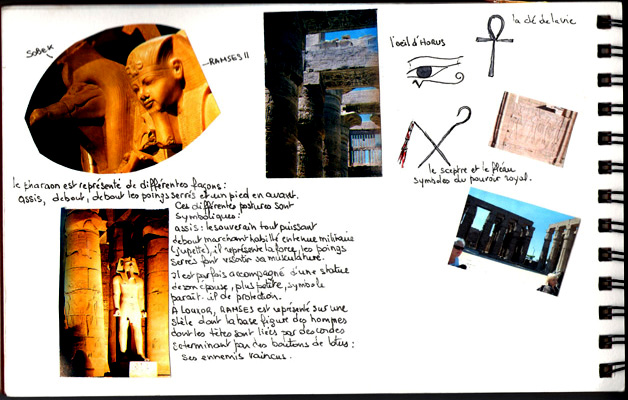 SOBEK
RAMSES II
l'oeil d'HORUS
la clé de la vie
le sceptre et le fléau
symboles du pouvoir royal.
le pharaon est représenté de différentes façons:
assis, debout, debout les poings serrés et un pied en avant.
Ces différentes postures sont
symboliques:
assis: le souverain tout puissant
debout marchant habillé en tenue militaire
(jupette), il représente la force, les poings
serrés font ressortir sa musculature.
Il est parfois accompagné d'une statue
de son épouse, plus petite, symbole
parait-il de protection.
A LOUXOR, RAMSES est représenté sur une
stèle dont la base figure des hommes
dont les têtes sont liées par des cordes
se terminant par des boutons de lotus:
ses ennemis vaincus.